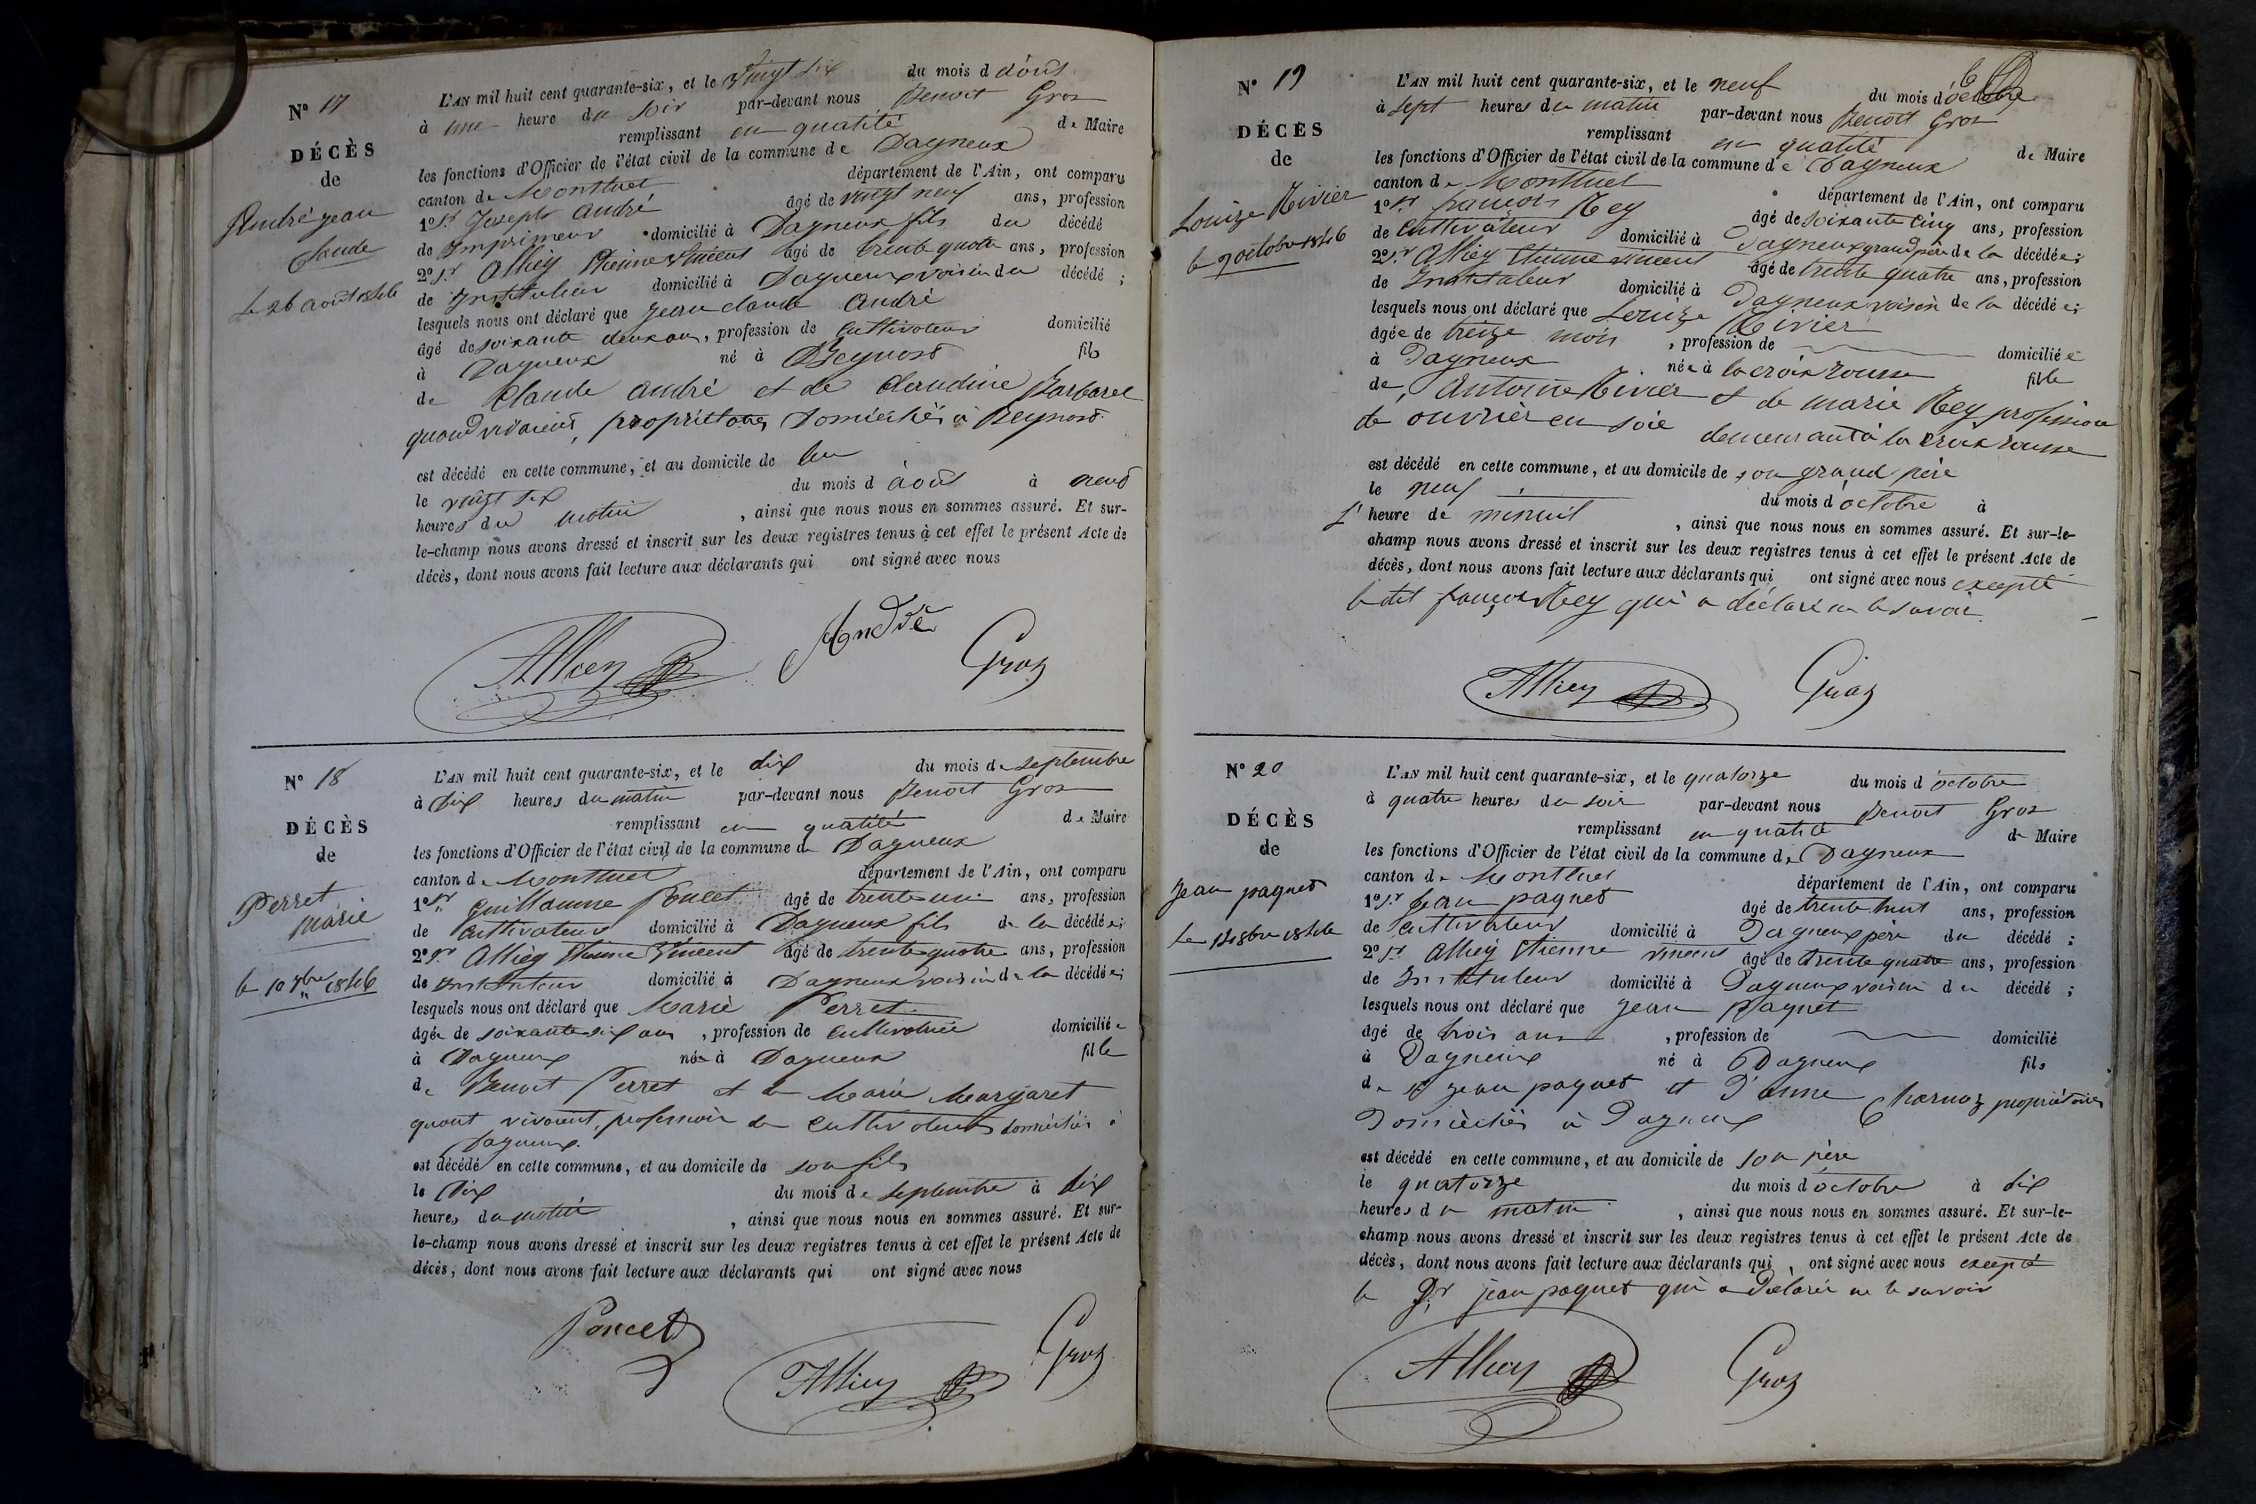 N° 17
DÉCÈS
de
André jean
Claude
le 26 août 1846
L'AN mil huit cent quarante-six, et le vingt six du mois d'août
à une heure du soir par-devant nous Benoit Groz
remplissant en qualité de Maire
les fonctions d'Officier de l'état civil de la commune de Dagneux
canton de Montluel département de l'Ain, ont comparu
1° Sr Joseph André âgé de vingt neuf ans, profession
de Imprimeur domicilié à Dagneux fils du décédé
2° Sr Alliey Etienne Vincent âgé de trente quatre ans, profession
de Instituteur domicilié à Dagneux voisin du décédé ;
lesquels nous ont déclaré que Jean claude André
âgé de soixante deux ans, profession de Cultivateur domicilié
à Dagneux né à Beynost fils
de Claude André et de Claudine Barbaret
quand vivaient, propriétaires domiciliés à Beynost
est décédé en cette commune, et au domicile de lui
le vingt six du mois d'août à neuf
heures du matin, ainsi que nous nous en sommes assuré. Et sur-
le-champ nous avons dressé et inscrit sur les deux registres tenus à cet effet le présent Acte de
décès, dont nous avons fait lecture aux déclarants qui ont signé avec nous
Alliey André Groz
N° 18
DÉCÈS
de
Perret
Marie
le 10 7bre 1846
L'AN mil huit cent quarante-six, et le dix du mois de septembre
à dix heures du matin par-devant nous Benoit Groz
remplissant en qualité de Maire
les fonctions d'Officier de l'état civil de la commune de Dagneux
canton de Montluel département de l'Ain, ont comparu
1° Sr Guillaume Poncet âgé de trente un ans, profession
de Cultivateur domicilié à Dagneux fils de la décédée;
2° Sr Alliey Etienne Vincent âgé de trente quatre ans, profession
de Instituteur domicilié à Dagneux voisin de la décédée;
lesquels nous ont déclaré que Marie Perret
âgée de soixante dix ans, profession de Cultivatrice domiciliée
à Dagneux née à Dagneux fille
de Benoit Perret et de Marie Margaret
quant vivaient, profession de Cultivateurs domiciliés à
Dagneux.
est décédé en cette commune, et au domicile de son fils
le dix du mois de septembre à dix
heures du matin, ainsi que nous nous en sommes assuré. Et sur-
le-champ nous avons dressé et inscrit sur les deux registres tenus à cet effet le présent Acte de
décès, dont nous avons fait lecture aux déclarants qui ont signé avec nous
Poncet Alliey Groz
N° 19
DÉCÈS
de
Louize Rivier
le 9 octobre 1846
L'AN mil huit cent quarante-six, et le neuf du mois d'octobre
à sept heures du matin par-devant nous Benoit Groz
remplissant en qualité de Maire
les fonctions d'Officier de l'état civil de la commune de Dagneux
canton de Montluel département de l'Ain, ont comparu
1° Sr françois Rey âgé de soixante cinq ans, profession
de Cultivateur domicilié à Dagneux grand père de la décédée;
2° Sr Alliey Etienne Vincent âgé de trente quatre ans, profession
de Instituteur domicilié à Dagneux voisin de la décédée;
lesquels nous ont déclaré que Louize Rivier
âgée de treize mois, profession de domiciliée
à Dagneux née à la croix rousse fille
de Antoine Rivier et de marie Rey profession
de ouvrier en soie demeurant à la croix rousse
est décédé en cette commune, et au domicile de son grand père
le neuf du mois d'octobre à
l'heure de minuit, ainsi que nous nous en sommes assuré. Et sur-le-
champ nous avons dressé et inscrit sur les deux registres tenus à cet effet le présent Acte de
décès, dont nous avons fait lecture aux déclarants qui ont signé avec nous excepté
le dit françois Rey qui a déclaré ne le savoir.
Alliey Groz
N° 20
DÉCÈS
de
Jean paquet
le 14 8bre 1846
L'AN mil huit cent quarante-six, et le quatorze du mois d'octobre
à quatre heures du soir par-devant nous Benoit Groz
remplissant en qualité de Maire
les fonctions d'Officier de l'état civil de la commune de Dagneux
canton de Montluel département de l'Ain, ont comparu
1° Sr Jean paquet âgé de trente huit ans, profession
de Cultivateur domicilié à Dagneux père du décédé ;
2° Sr Alliey Etienne Vincent âgé de trente quatre ans, profession
de Instituteur domicilié à Dagneux voisin du décédé ;
lesquels nous ont déclaré que Jean Paquet
âgé de trois ans, profession de domicilié
à Dagneux né à Dagneux fils
de Jean paquet et d'anne Charnoz propriétaires
Domiciliés à Dagneux
est décédé en cette commune, et au domicile de son père
le quatorze du mois d'octobre à dix
heures du matin, ainsi que nous nous en sommes assuré. Et sur-le-
champ nous avons dressé et inscrit sur les deux registres tenus à cet effet le présent Acte de
décès, dont nous avons fait lecture aux déclarants qui ont signé avec nous excepté
le Sr jean paquet qui a Déclaré ne le savoir
Alliey Groz